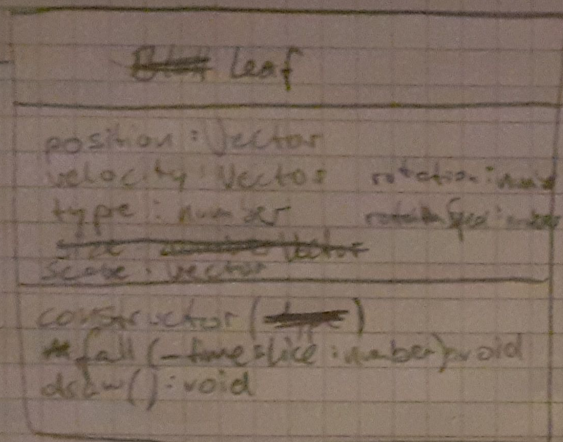 Leaf
position : Vector
velocity : Vector rotation : number
type : number rotationSpeed : number
scale : Vector
constructor ()
fall (_timeslice : number) : void
draw() : void